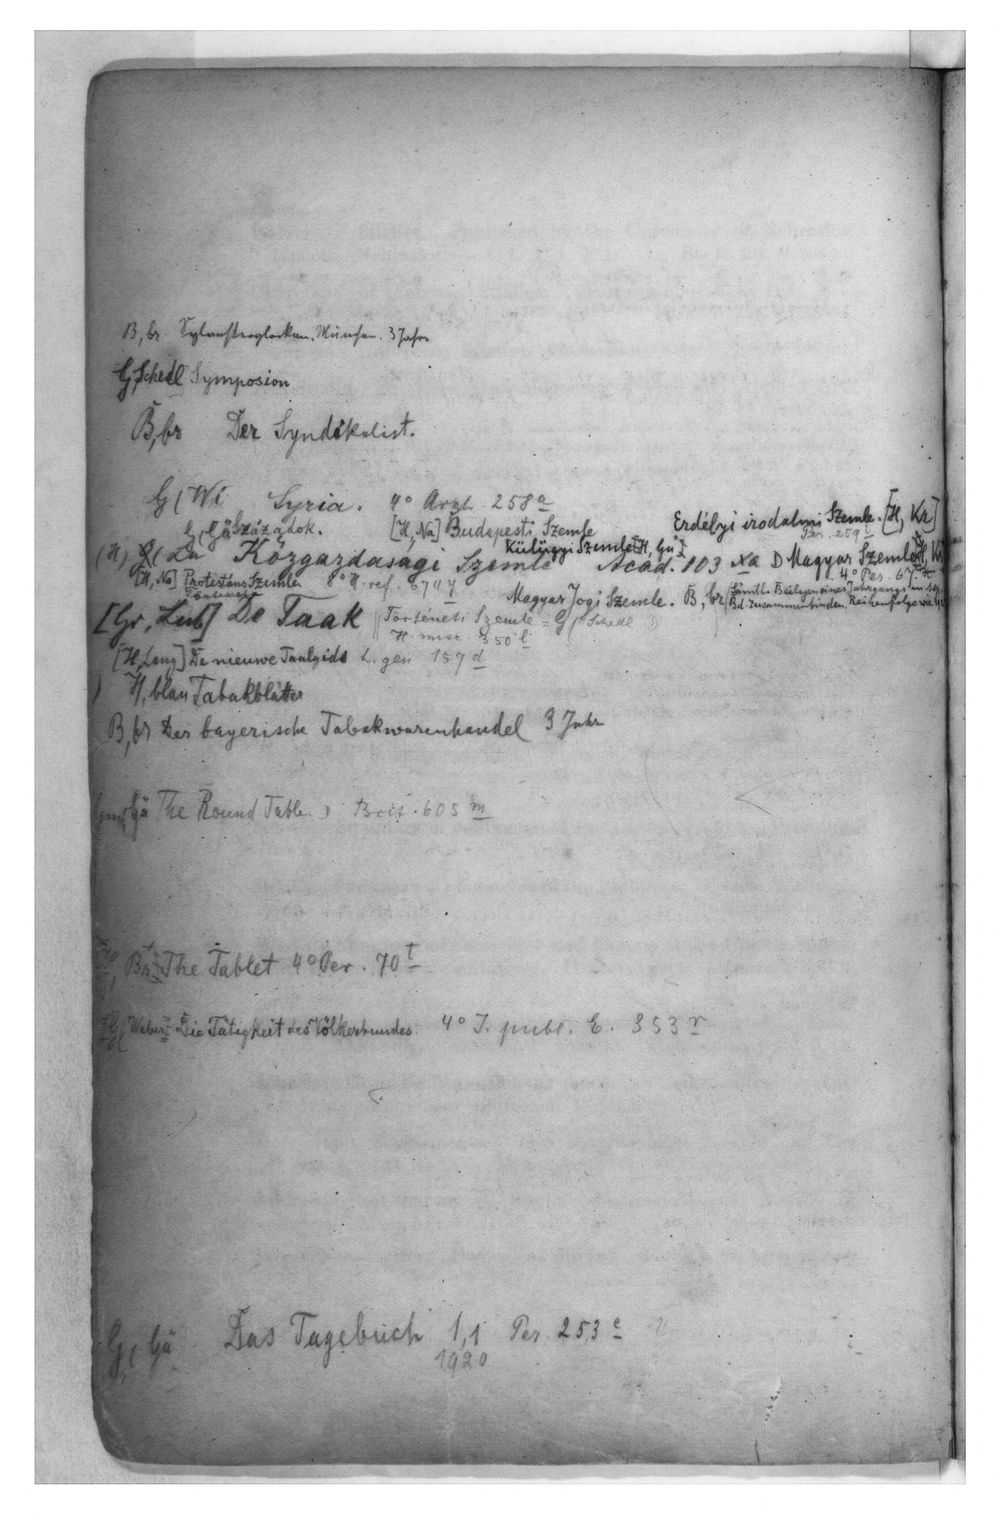 B, br. Sylvesterglocken. München. 3 Jahre
G, Schedl Symposion
B, br Der Syndikalist.
G ( Wi Syria. 4° Arch. 258 a
G, Gä Századok. [H, Na] Budapesti Szemle Erdélyi irodalmi Szemle. [H, Kr]
Per. 259 i
Külügyi Szemle [H, Gä]
(H) G ( La Közgazdasagi Szemle Acad. 103 xa D Magyar Szemle [H, Kr]
[H, Na] Protestáns Szemle 8° H. ref. 674 y 4° Per. 67
Magyar Jogi Szemle. B, br (Sämtl. Beilagen eines Jahrgangs in
Bd. zusammenbinden, Reihenfolge wie
[Gr, Lub] De Taak Történeti Szemle = G ( Schedl
H. misc. 350 l
[H, Lang] De nieuwe Taalgids L. gen 157 d
H, blau Tabakblätter
B, br Der bayerische Tabakwarenhandel 3 Jahr
Gä The Round Table Brit. 605 m
Br The Tablet 4° Per. 70 t
G ( Weber Die Tätigkeit des Völkerbundes 4° J. publ. E. 353 r
G ( Gä Das Tagebuch 1,1 Per. 253 e
1920